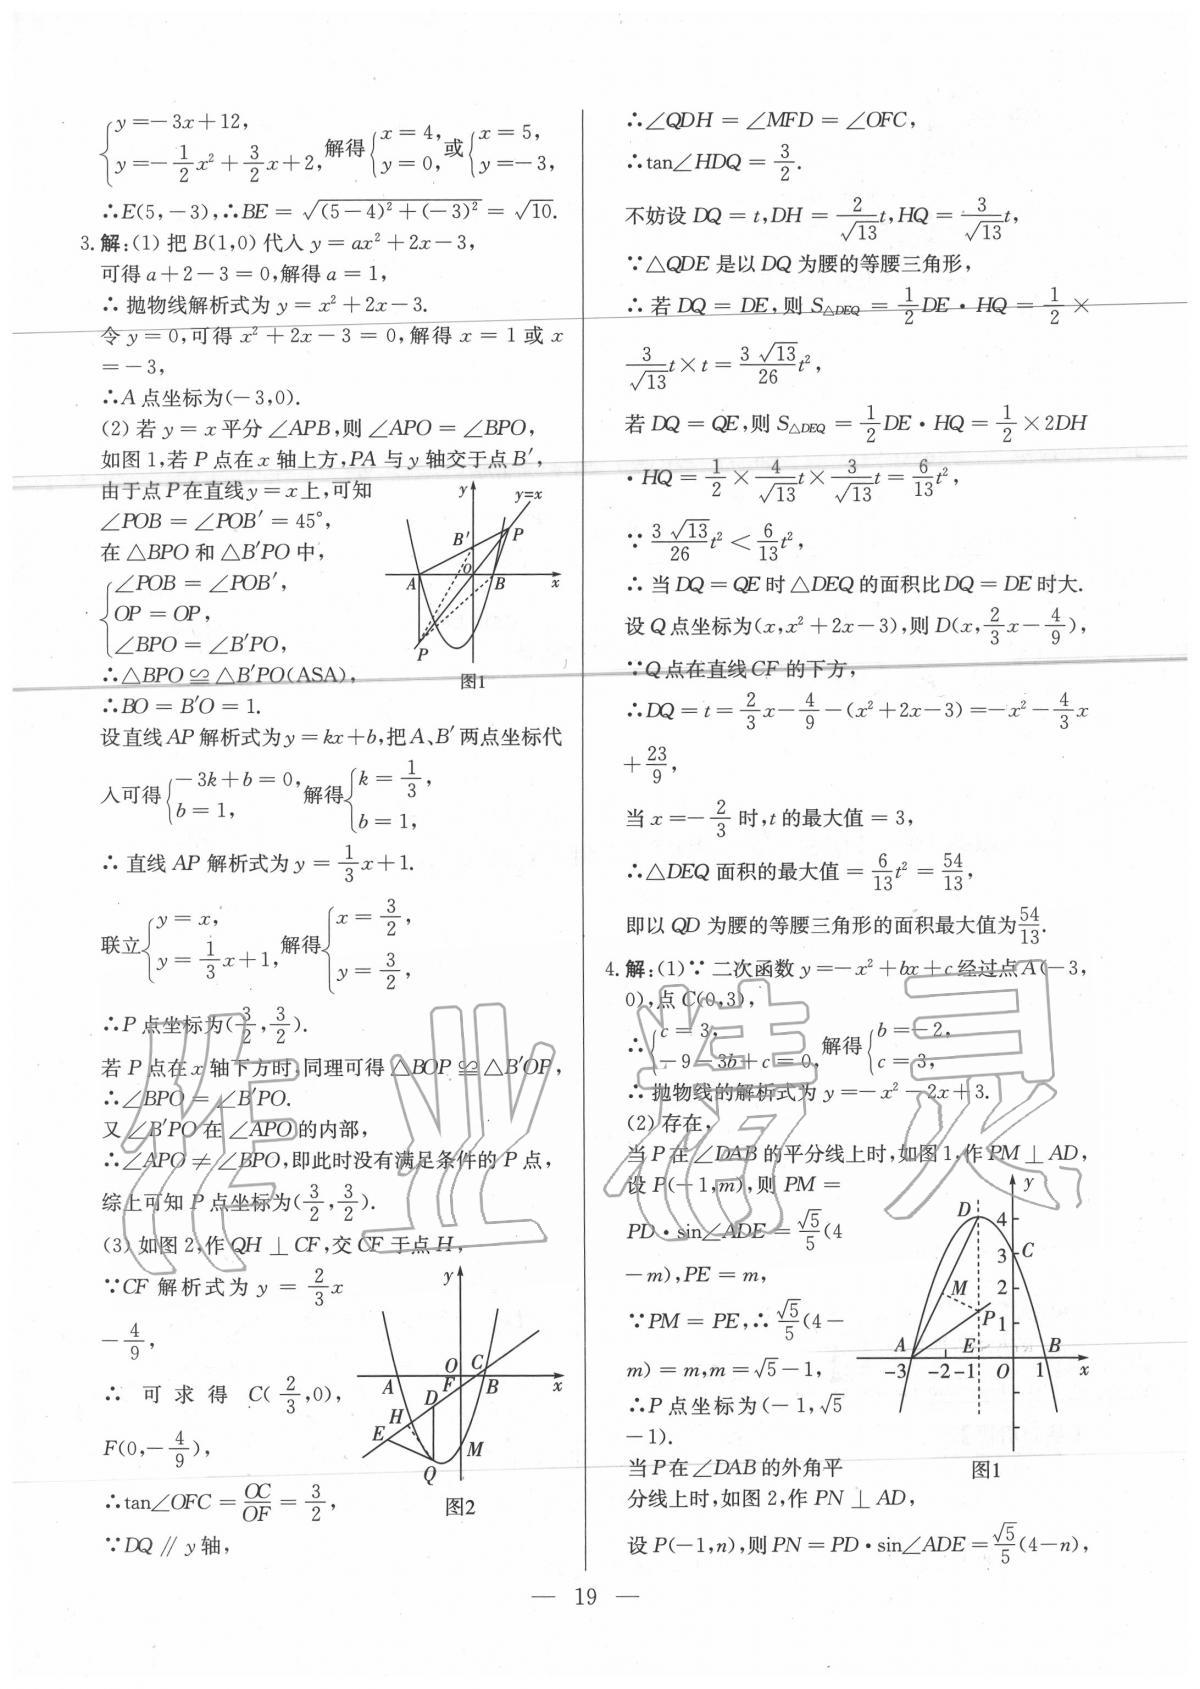 {y=-3x+12,
y=-1/2x²+3/2x+2, 解得{x=4, y=0, 或{x=5, y=-3,
∴E(5,-3),∴BE=√((5-4)²+(-3)²)=√10.
3.解:(1)把B(1,0)代入y=ax²+2x-3,
可得a+2-3=0,解得a=1,
∴抛物线解析式为y=x²+2x-3.
令y=0,可得x²+2x-3=0,解得x=1或x
=-3,
∴A点坐标为(-3,0).
(2)若y=x平分∠APB,则∠APO=∠BPO,
如图1,若P点在x轴上方,PA与y轴交于点B′,
由于点P在直线y=x上,可知
∠POB=∠POB′=45°,
在△BPO和△B′PO中,
{∠POB=∠POB′,
OP=OP,
∠BPO=∠B′PO,
∴△BPO≌△B′PO(ASA),
y
y=x
B′
P
O
A
B
x
P
图1
∴BO=B′O=1.
设直线AP解析式为y=kx+b,把A、B′两点坐标代
入可得{-3k+b=0, b=1, 解得{k=1/3, b=1,
∴直线AP解析式为y=1/3x+1.
联立{y=x, y=1/3x+1, 解得{x=3/2, y=3/2,
∴P点坐标为(3/2,3/2).
若P点在x轴下方时,同理可得△BOP≌△B′OP,
∴∠BPO=∠B′PO.
又∠B′PO在∠APO的内部,
∴∠APO≠∠BPO,即此时没有满足条件的P点,
综上可知P点坐标为(3/2,3/2).
(3)如图2,作QH⊥CF,交CF于点H,
∵CF解析式为y=2/3x
-4/9,
∴可求得C(2/3,0),
F(0,-4/9),
∴tan∠OFC=OC/OF=3/2,
∵DQ∥y轴,
y
O
C
A
F
B
x
D
H
E
M
Q
图2
∴∠QDH=∠MFD=∠OFC,
∴tan∠HDQ=3/2.
不妨设DQ=t,DH=2/√13t,HQ=3/√13t,
∵△QDE是以DQ为腰的等腰三角形,
∴若DQ=DE,则S△DEQ=1/2DE·HQ=1/2×
3/√13t×t=3√13/26t²,
若DQ=QE,则S△DEQ=1/2DE·HQ=1/2×2DH
·HQ=1/2×4/√13t×3/√13t=6/13t²,
∵3√13/26t²<6/13t²,
∴当DQ=QE时△DEQ的面积比DQ=DE时大.
设Q点坐标为(x,x²+2x-3),则D(x,2/3x-4/9),
∵Q点在直线CF的下方,
∴DQ=t=2/3x-4/9-(x²+2x-3)=-x²-4/3x
+23/9,
当x=-2/3时,t的最大值=3,
∴△DEQ面积的最大值=6/13t²=54/13,
即以QD为腰的等腰三角形的面积最大值为54/13.
4.解:(1)∵二次函数y=-x²+bx+c经过点A(-3,
0),点C(0,3),
∴{c=3, -9-3b+c=0, 解得{b=-2, c=3,
∴抛物线的解析式为y=-x²-2x+3.
(2)存在,
当P在∠DAB的平分线上时,如图1,作PM⊥AD,
设P(-1,m),则PM=
PD·sin∠ADE=√5/5(4
-m),PE=m,
∵PM=PE,∴√5/5(4-
m)=m,m=√5-1,
∴P点坐标为(-1,√5
-1).
当P在∠DAB的外角平
分线上时,如图2,作PN⊥AD,
设P(-1,n),则PN=PD·sin∠ADE=√5/5(4-n),
y
D
4
3
C
M
2
P
1
A
E
B
-3
-2
-1
O
1
x
图1
作业精灵
— 19 —